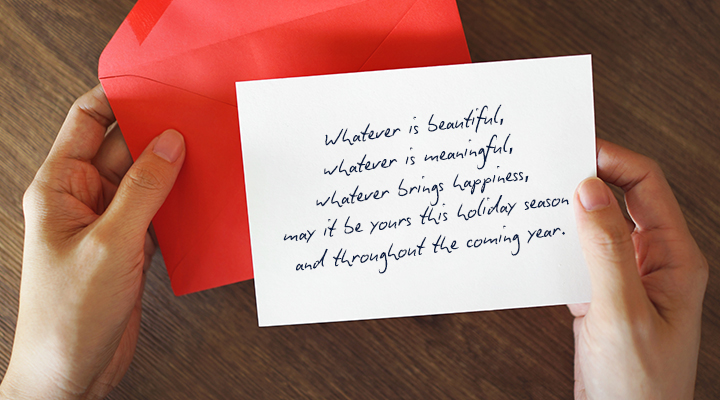 Whatever is beautiful,
whatever is meaningful,
whatever brings happiness,
may it be yours this holiday season
and throughout the coming year.